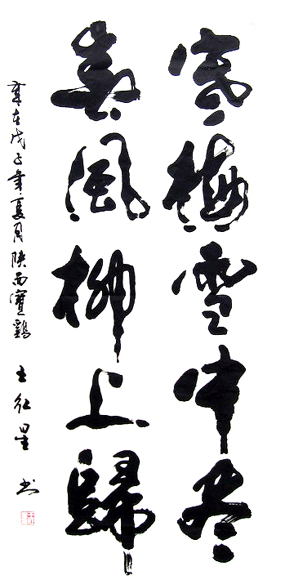 寒梅雪中尽
春風柳上歸
歲在戊子年夏月陕西寶鷄 王红星 书